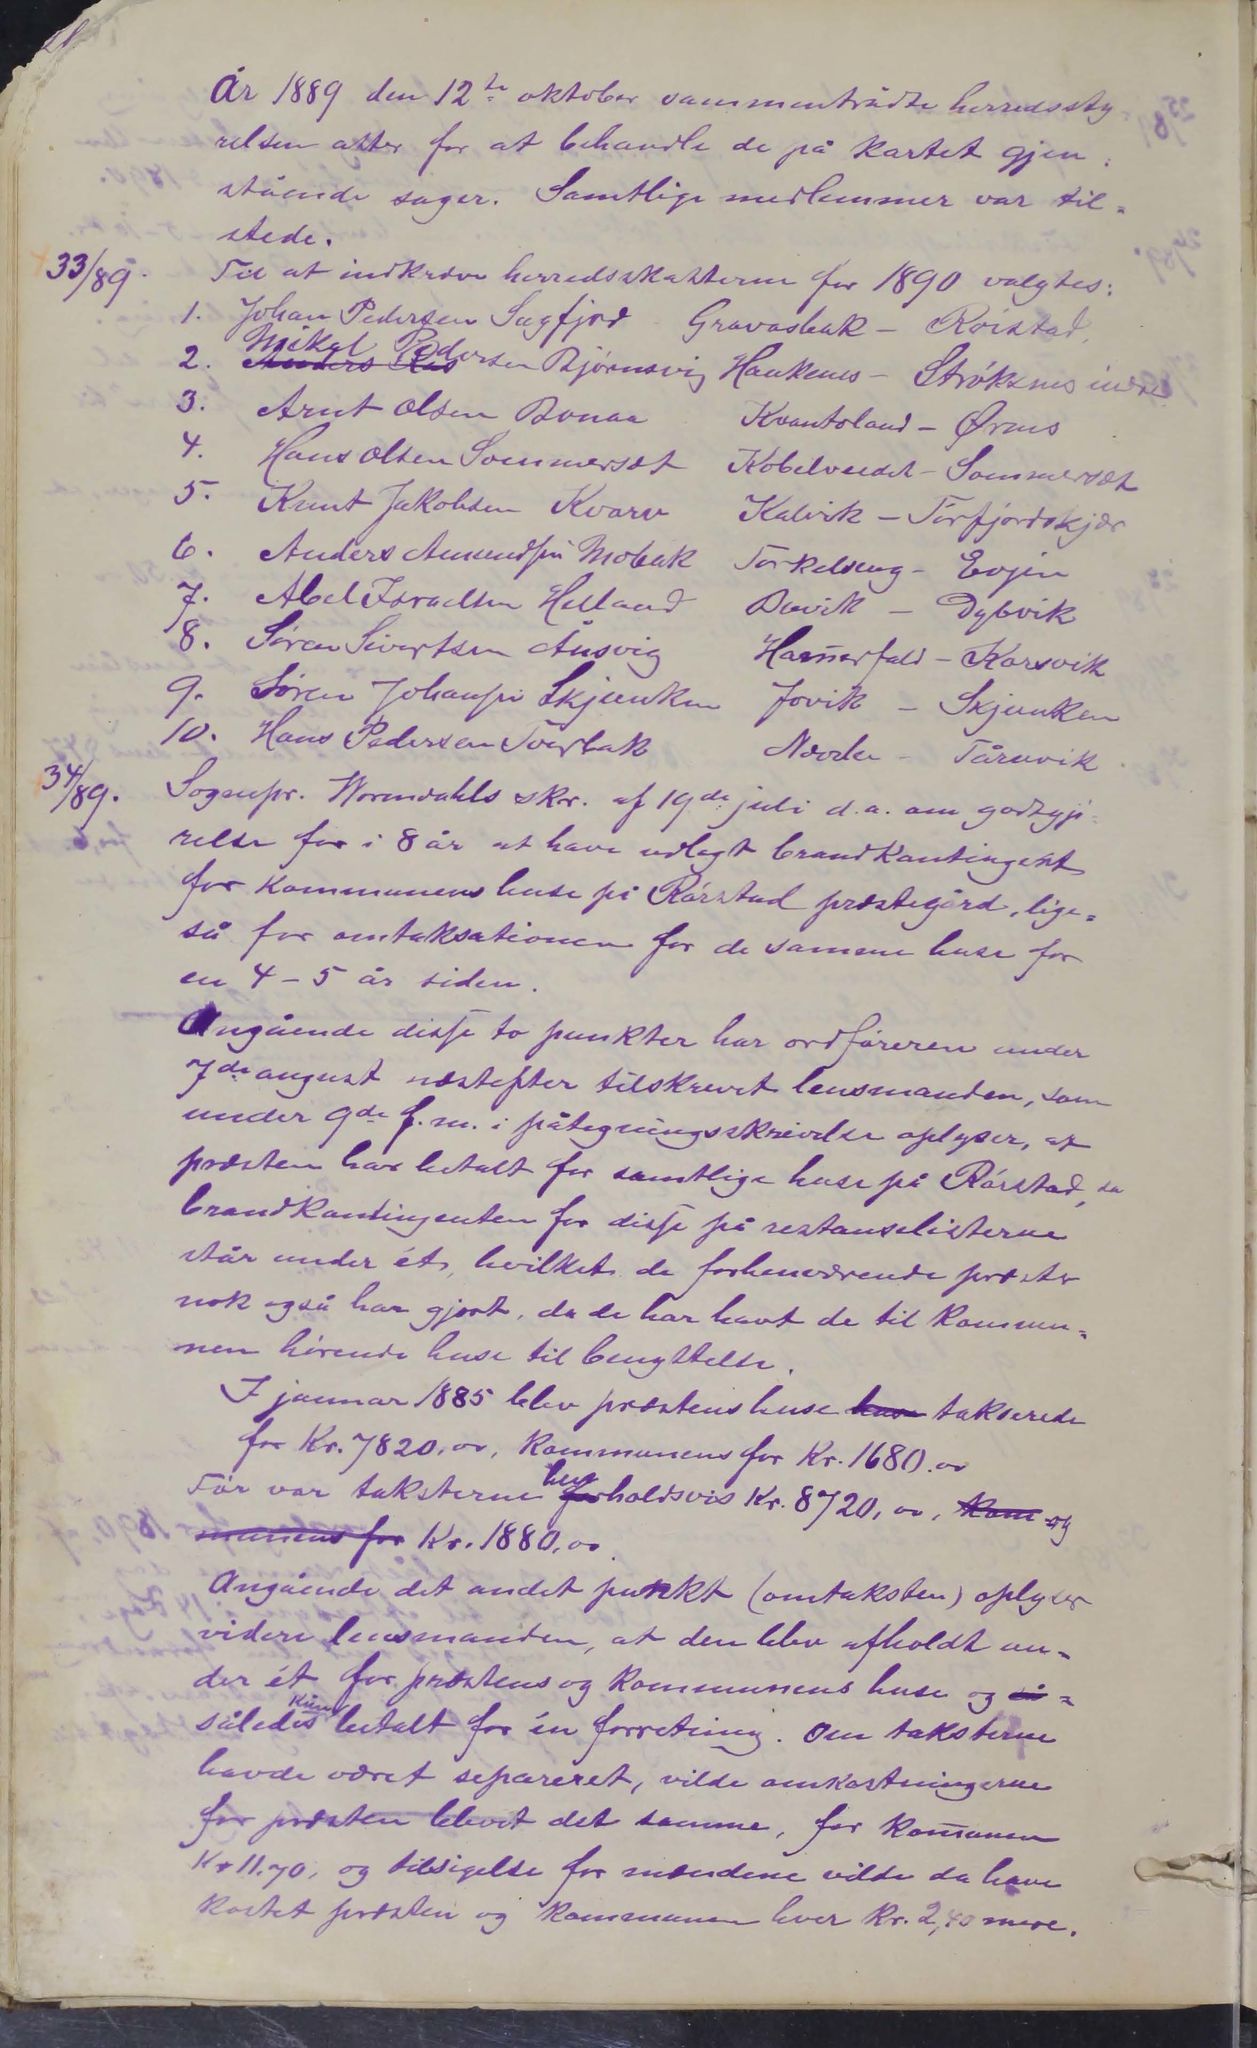 År 1889 den 12te oktober sammentrådte herredssty
relsen atter for at behandle de på kartet gjen-
stående sager. Samtlige medlemmer var til-
stede.
33/89. Til at indkræve herredsskatterne for 1890 valgtes:
1. Johan Pedersen Sagfjord Gravasbak - Röistad,
2. Mikal Pedersen Bjørnsvig Haukenes - Ströksnes indre
3. Arnt Olsen Bonaa Kvantoland - Ørnes
4. Hans Olsen Sommerset Kobelveidet - Sommerset
5. Knut Jakobsen Kvarv Kalvik - Torfjordskjær
6. Anders Amundsen Mobak Torkelseng - Evjen
7. Abel Israelsen Helland Buvik - Dybvik
8. Søren Sivertsen Åusvig Hammerfald - Korsvik
9. Søren Johansen Skjunken Jovik - Skjunken
10. Hans Pedersen Tverbak Nevelse - Tårnvik
34/89. Sognepr. Wormdahls skr. af 19de juli d.a. om godtgjö-
relse for i 8 år at have udlagt brandkontingent
for kommunens huse på Rörstad præstegård, lige-
så for omtaksationen for de samme huse for
en 4-5 år siden.
Angående disse to punkter har ordföreren under
7de august næstefter tilskrevet lensmanden, som
under 9de f.m. i påtegningsskrivelse oplyser, at
præsten har betalt for samtlige huse på Rörstad, da
brandkontingenten for disse på restanselisterne
står under ét, hvilket de forhenværende præster
nok også har gjort, da de har havt de til kommu-
nen hörende huse til benyttelse.
I januar 1885 blev præstens huse huse takserede
for Kr. 7820,00, kommunens for Kr. 1680.00
För var taksterne henholdsvis Kr. 8720,00, kom og
munens for Kr. 1880,00
Angående det andet punkt (omtaksten) oplyser
videre lensmanden, at den blev afholdt un-
der ét for præstens og kommunens huse og så-
således kun betalt for én forretning. Om taksterne
havde været separeret, vilde omkostningerne
for præsten blevet det samme, for komunen
Kr 11.70, og tilsigelse for mændene vilde da have
kostet præsten og kommunen hver Kr. 2,40 mere.